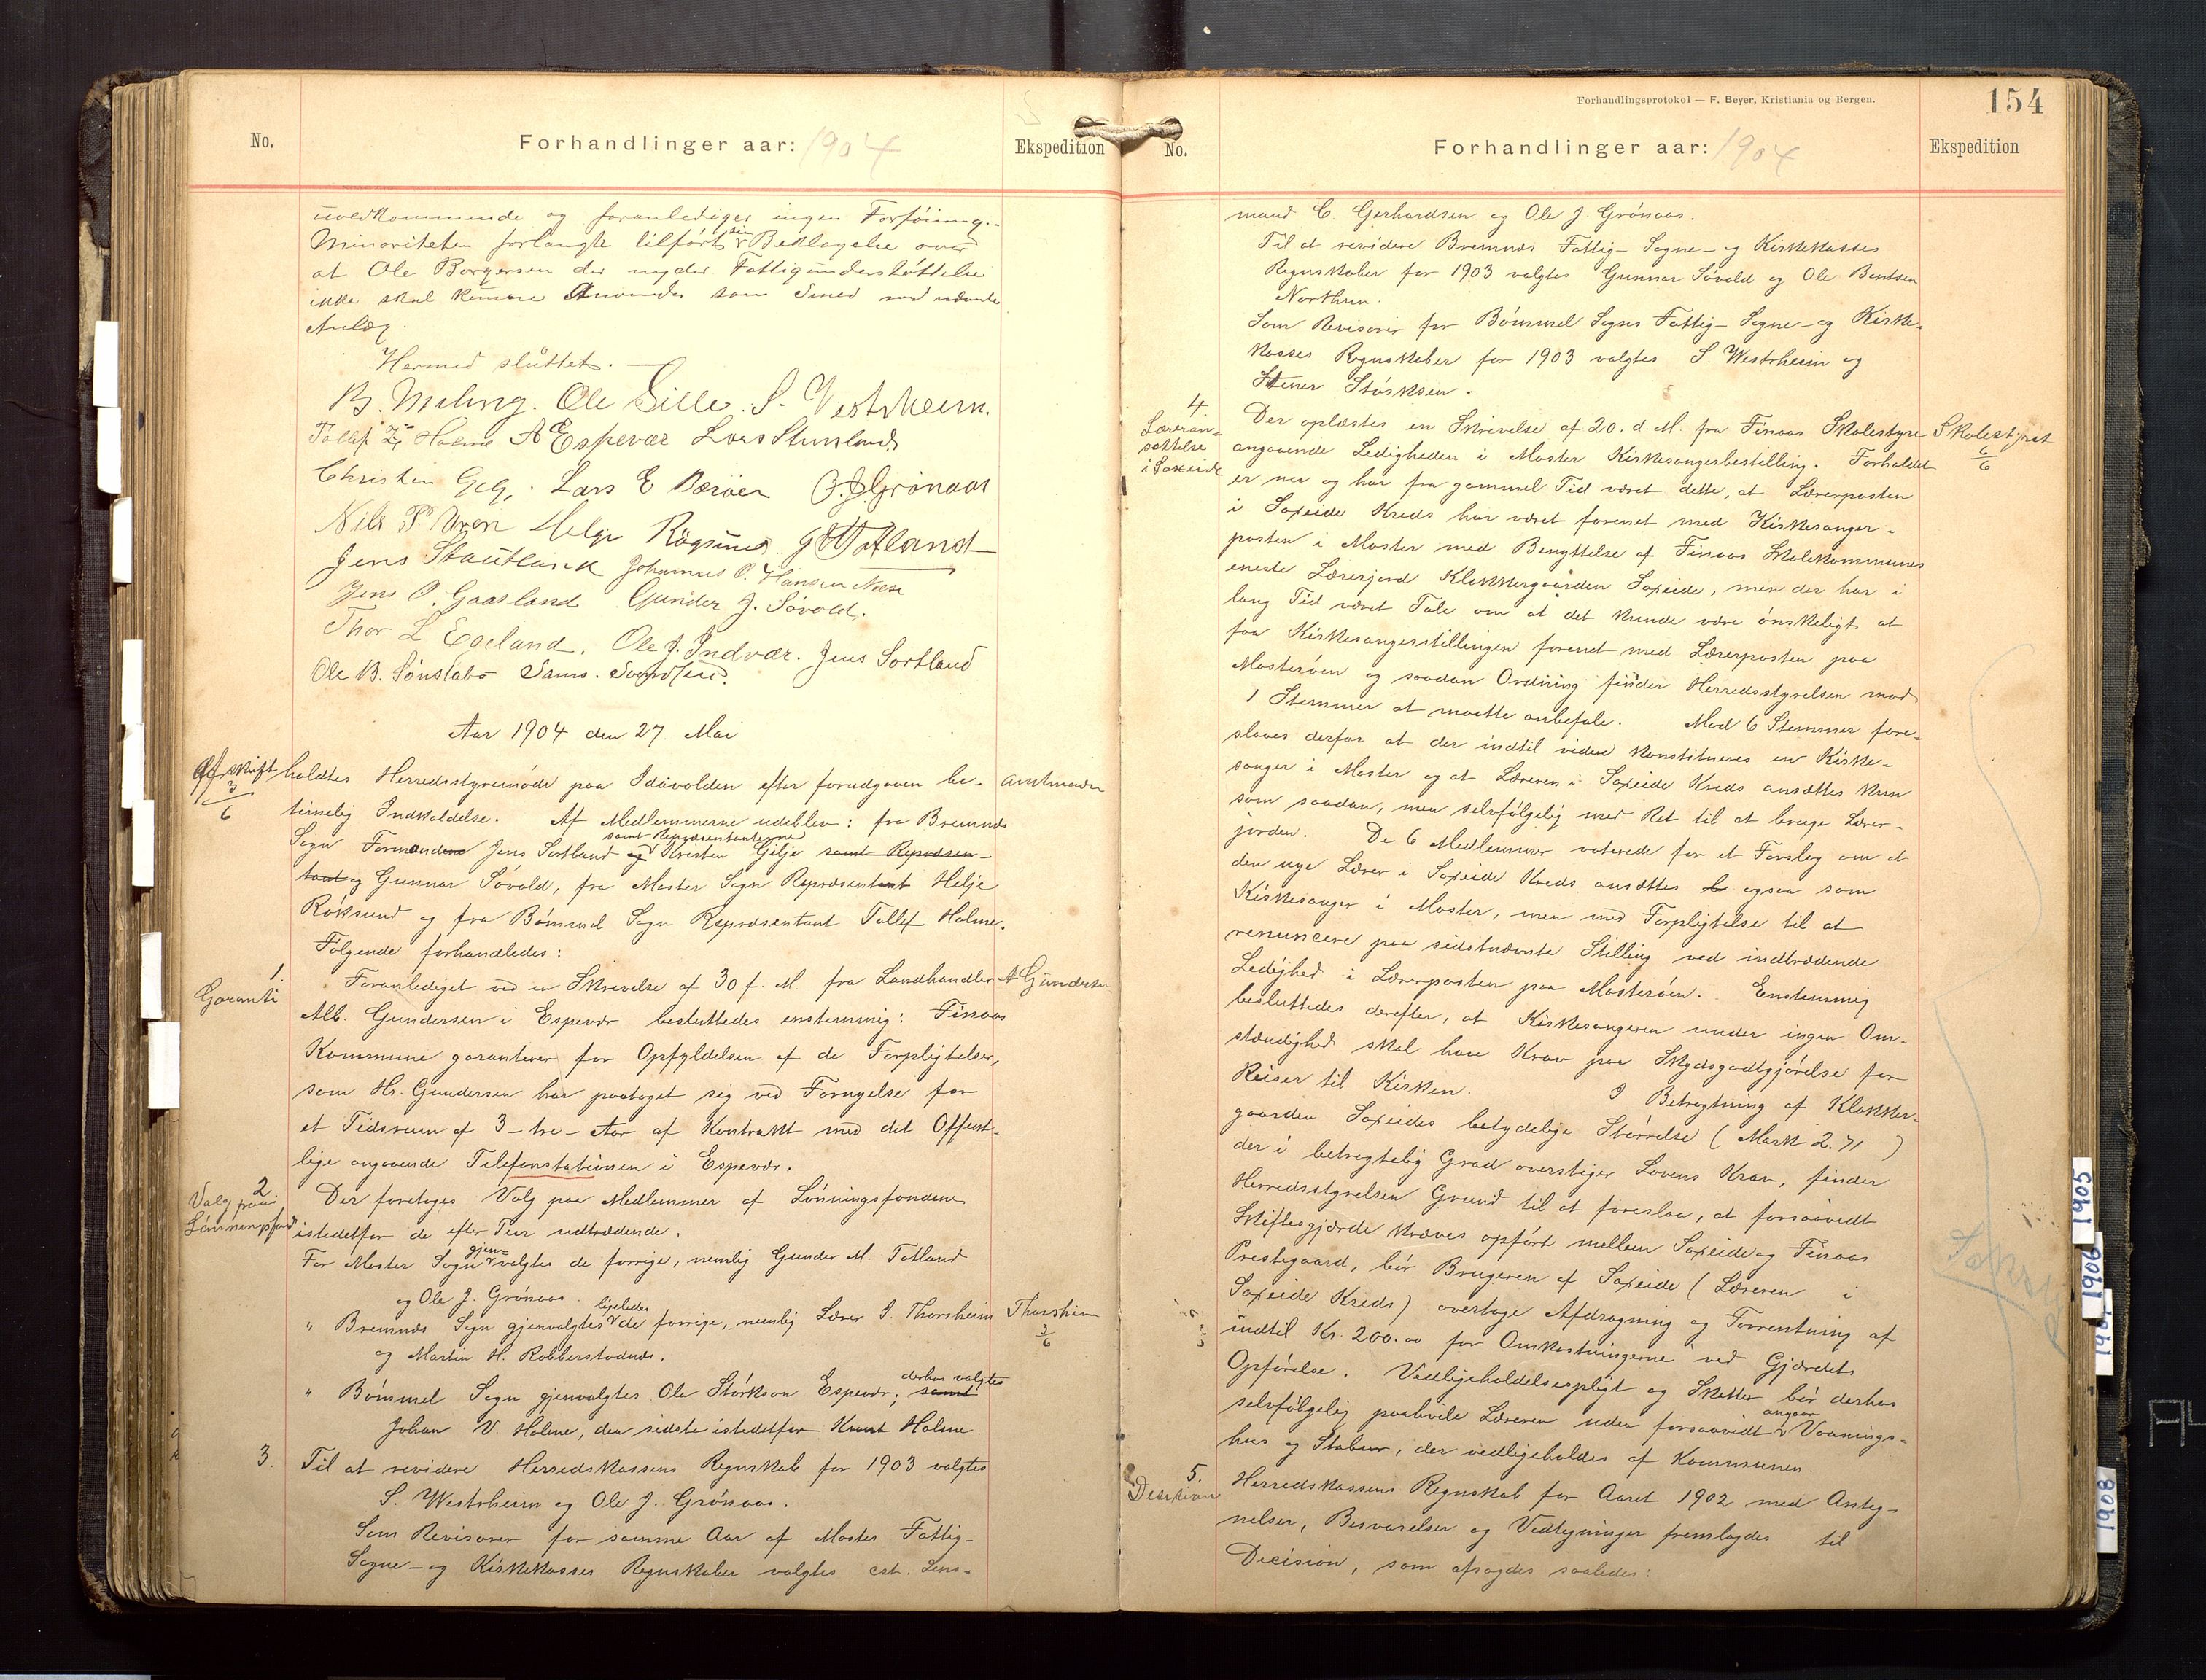 No.
Forhandlinger aar: 1904
Ekspedition
uvedkommende og foranlediger ingen Forføining.
Minoriteten forlangte tilført sin Beklagelse over
at Ole Borgersen der nyder Fattigunderstøttelse
ikke skal kunne Anvendes som Smed ved
Anlæg.
Hermed sluttet.
B. Meling. Ole Lille. S. Vestrheim.
Tollef Holme A Espevær Lars Stuvland
Christen Lars E Børøen O. J Grønaas
Nils P. Vren Helge Røgsund G M Totland
Jens Stautland Johannes P. Hansen Næse
Jens O. Gaasland Gunder J. Søvold.
Thor L Egeland. Ole J. Indvær. Jens Sortland
Ole B. Sønstabø
Aar 1904 den 27. Mai
Afskrift 3/6
holdtes Herredsstyremøde paa Idavolden efter forudgaaen be-
Amtmanden
timelig Indkaldelse. Af Medlemmerne udeblev: fra Bremnæs
Sogn Formand Jens Sortland samt Repræsentanterne Kristen Gilje samt Repræsen-
tant og Gunnar Søvold, fra Moster Sogn Repræsentant Helje
Røksund og fra Bømmel Sogn Repræsentant Tollef Holme.
Følgende forhandledes:
1. Garanti
Foranlediget ved en Skrivelse af 30 f. M. fra Landhandler
A. Gundersen
Alb. Gundersen i Espevær besluttedes enstemmig: Finaas
Kommune garanterer for Opfyldelsen af de Forpligtelser,
som Hr. Gundersen har paataget sig ved Fornyelse for
et Tidsrum af 3 - tre - Aar af Kontrakt med det Offent-
lige angaaende Telefonstationen i Espevær.
2. Valg paa Lønningsfond
Der foretoges Valg paa Medlemmer af Lønningsfondene
istedetfor de efter Tur udtrædende.
For Moster Sogn gjenvalgtes de forrige, nemlig Gunder M. Totland
og Ole J. Grønaas.
" Bremnæs Sogn gjenvalgtes ligeledes de forrige, nemlig Lærer J. Thorsheim
Thorsheim 3/6
og Martin H. Robberstadnæs.
" Bømmel Sogn gjenvalgtes Ole Størkson Espevær, samt derhos valgtes
Johan V. Holme, den sidste istedetfor Knut Holme.
3. Til at revidere Herredskassens Regnskab for 1903 valgtes
S. Westrheim og Ole J. Grønaas.
Som Revisorer for samme Aar af Moster Fattig-
Sogne- og Kirkekasses Regnskaber valgtes cst. Lens-
Forhandlingsprotokol — F. Beyer, Kristiania og Bergen.
154
No.
Forhandlinger aar: 1904
Ekspedition
mand C. Gerhardsen og Ole J. Grønaas.
Til at revidere Bremnæs Fattig- Sogne- og Kirkekasses
Regnskaber for 1903 valgtes Gunnar Søvold og Ole Bentsen
Northun.
Som Revisorer for Bømmel Sogns Fattig- Sogne- og Kirke-
kasses Regnskaber for 1903 valgtes S. Westrheim og
Stener Størksen.
4. Læreransættelse i Saxeide
Der oplæstes en Skrivelse af 20. d. M. fra Finaas Skolestyre
Skolestyret 6/6
angaaende Ledigheden i Moster Kirkesangerbestilling. Forholdet
er nu og har fra gammel Tid været dette, at Lærerposten
i Saxeide Kreds har været forenet med Kirkesanger-
posten i Moster med Benyttelse af Finaas Skolekommunes
eneste Lærerjord Klokkergaarden Saxeide, men der har i
lang Tid været Tale om at det kunde være ønskeligt at
faa Kirkesangerstillingen forenet med Lærerposten paa
Mosterøen og saadan Ordning finder Herredsstyrelsen mod
1 Stemmer at maatte anbefale. Med 6 Stemmer fore-
slaaes derfor at der indtil videre konstitueres en Kirke-
sanger i Moster og at Læreren i Saxeide Kreds ansættes kun
som saadan, men selvfølgelig med Ret til at bruge Lærer-
jorden. De 6 Medlemmer voterede for et Forslag om at
den nye Lærer i Saxeide Kreds ansættes ogsaa som
Kirkesanger i Moster, men med Forpligtelse til at
renuncere paa sidstnævnte Stilling ved indtrædende
Ledighed i Lærerposten paa Mosterøen. Enstemmig
besluttedes derefter, at Kirkesangeren under ingen Om-
stændighed skal have Krav paa Skydsgodtgjørelse for
Reiser til Kirken. I Betragtning af Klokker-
gaarden Saxeides betydelige Størrelse (Mark 2.71)
der i betragtelig Grad overstiger Lovens Krav, finder
Herredsstyrelsen Grund til at foreslaa, at forsaavidt
Skiftesgjærde kræves opført mellem Saxeide og Finaas
Prestegaard, bør Brugeren af Saxeide (Læreren i
Saxeide Kreds) overtage Afdragning og Forrentning af
indtil Kr. 200.00 for Omkostningerne ved Gjærdets
Opførelse. Vedligeholdelsespligt og Skatter bør derhos
selvfølgelig paahvile Læreren uden forsaavidt angaar Vaanings-
hus og Stabur, der vedligeholdes af Kommunen.
5. Decision
Herredskassens Regnskab for Aaret 1902 med Anteg-
nelser, Besvarelser og Vedtegninger fremlagdes til
Decision, som afsagdes saaledes:
1905
1906
1908